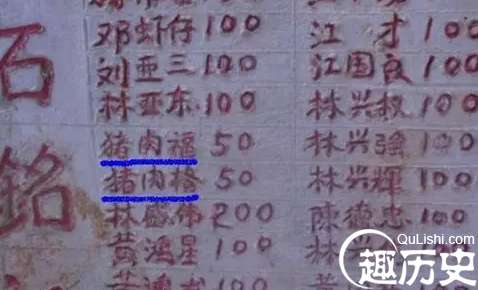 石
銘
邓虾仔 100 江才 100
刘亚三 100 江国良 100
林亚东 100 林兴权 100
猪肉福 50 林兴強 100
猪肉 50 林兴辉 100
林盛伟 200 陈德忠 100
黄鸿星 100 林
黄鸿
QuLishi.com
趣历史